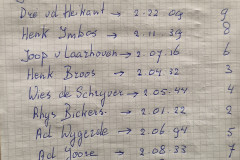 Dre vd Heikant → 2.22.09 9
Henk Imbos → 2.11.39 8
Joop v Laarhoven → 2.07.16 6
Henk Broos → 2.04.32 3
Wies de Schryver → 2.05.44 4
Rhys Bickers → 2.01.22 2
Ad Wygerde → 2.06.94 5
Ad Joore → 2.08.33 7